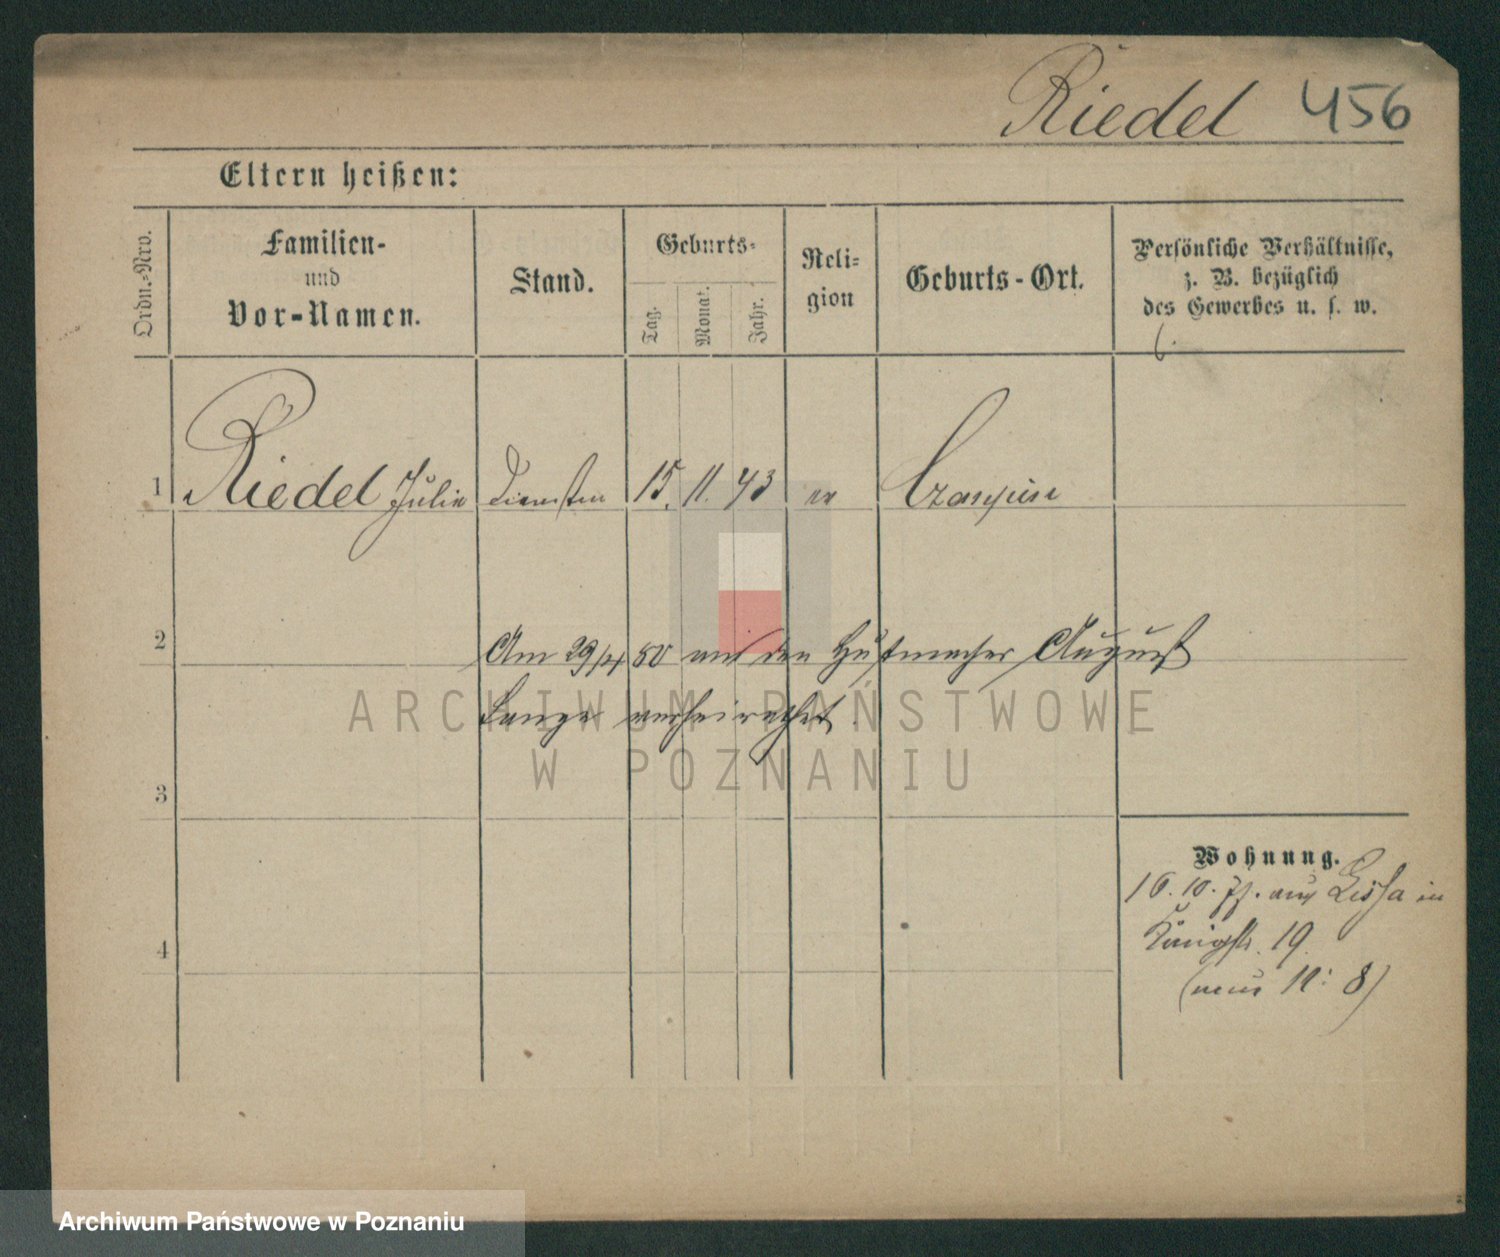 Riedel 456
Eltern heißen:
Ordn.-Nro.
Familien-
und
Vor-Namen.
Stand.
Geburts-
Tag.
Monat.
Jahr.
Reli-
gion
Geburts-Ort.
Persönliche Verhältnisse,
z. B. bezüglich
des Gewerbes u. s. w.
1 Riedel Julie 15. 11. 43 ev
2
Am 29/4 80 mit den Hutmacher August
Lange verheirathet
ARCHIWUM PAŃSTWOWE
W POZNANIU
3
Wohnung.
16. 10. aus Lissa in
Königstr. 19
4
(neue N: 8)
Archiwum Państwowe w Poznaniu